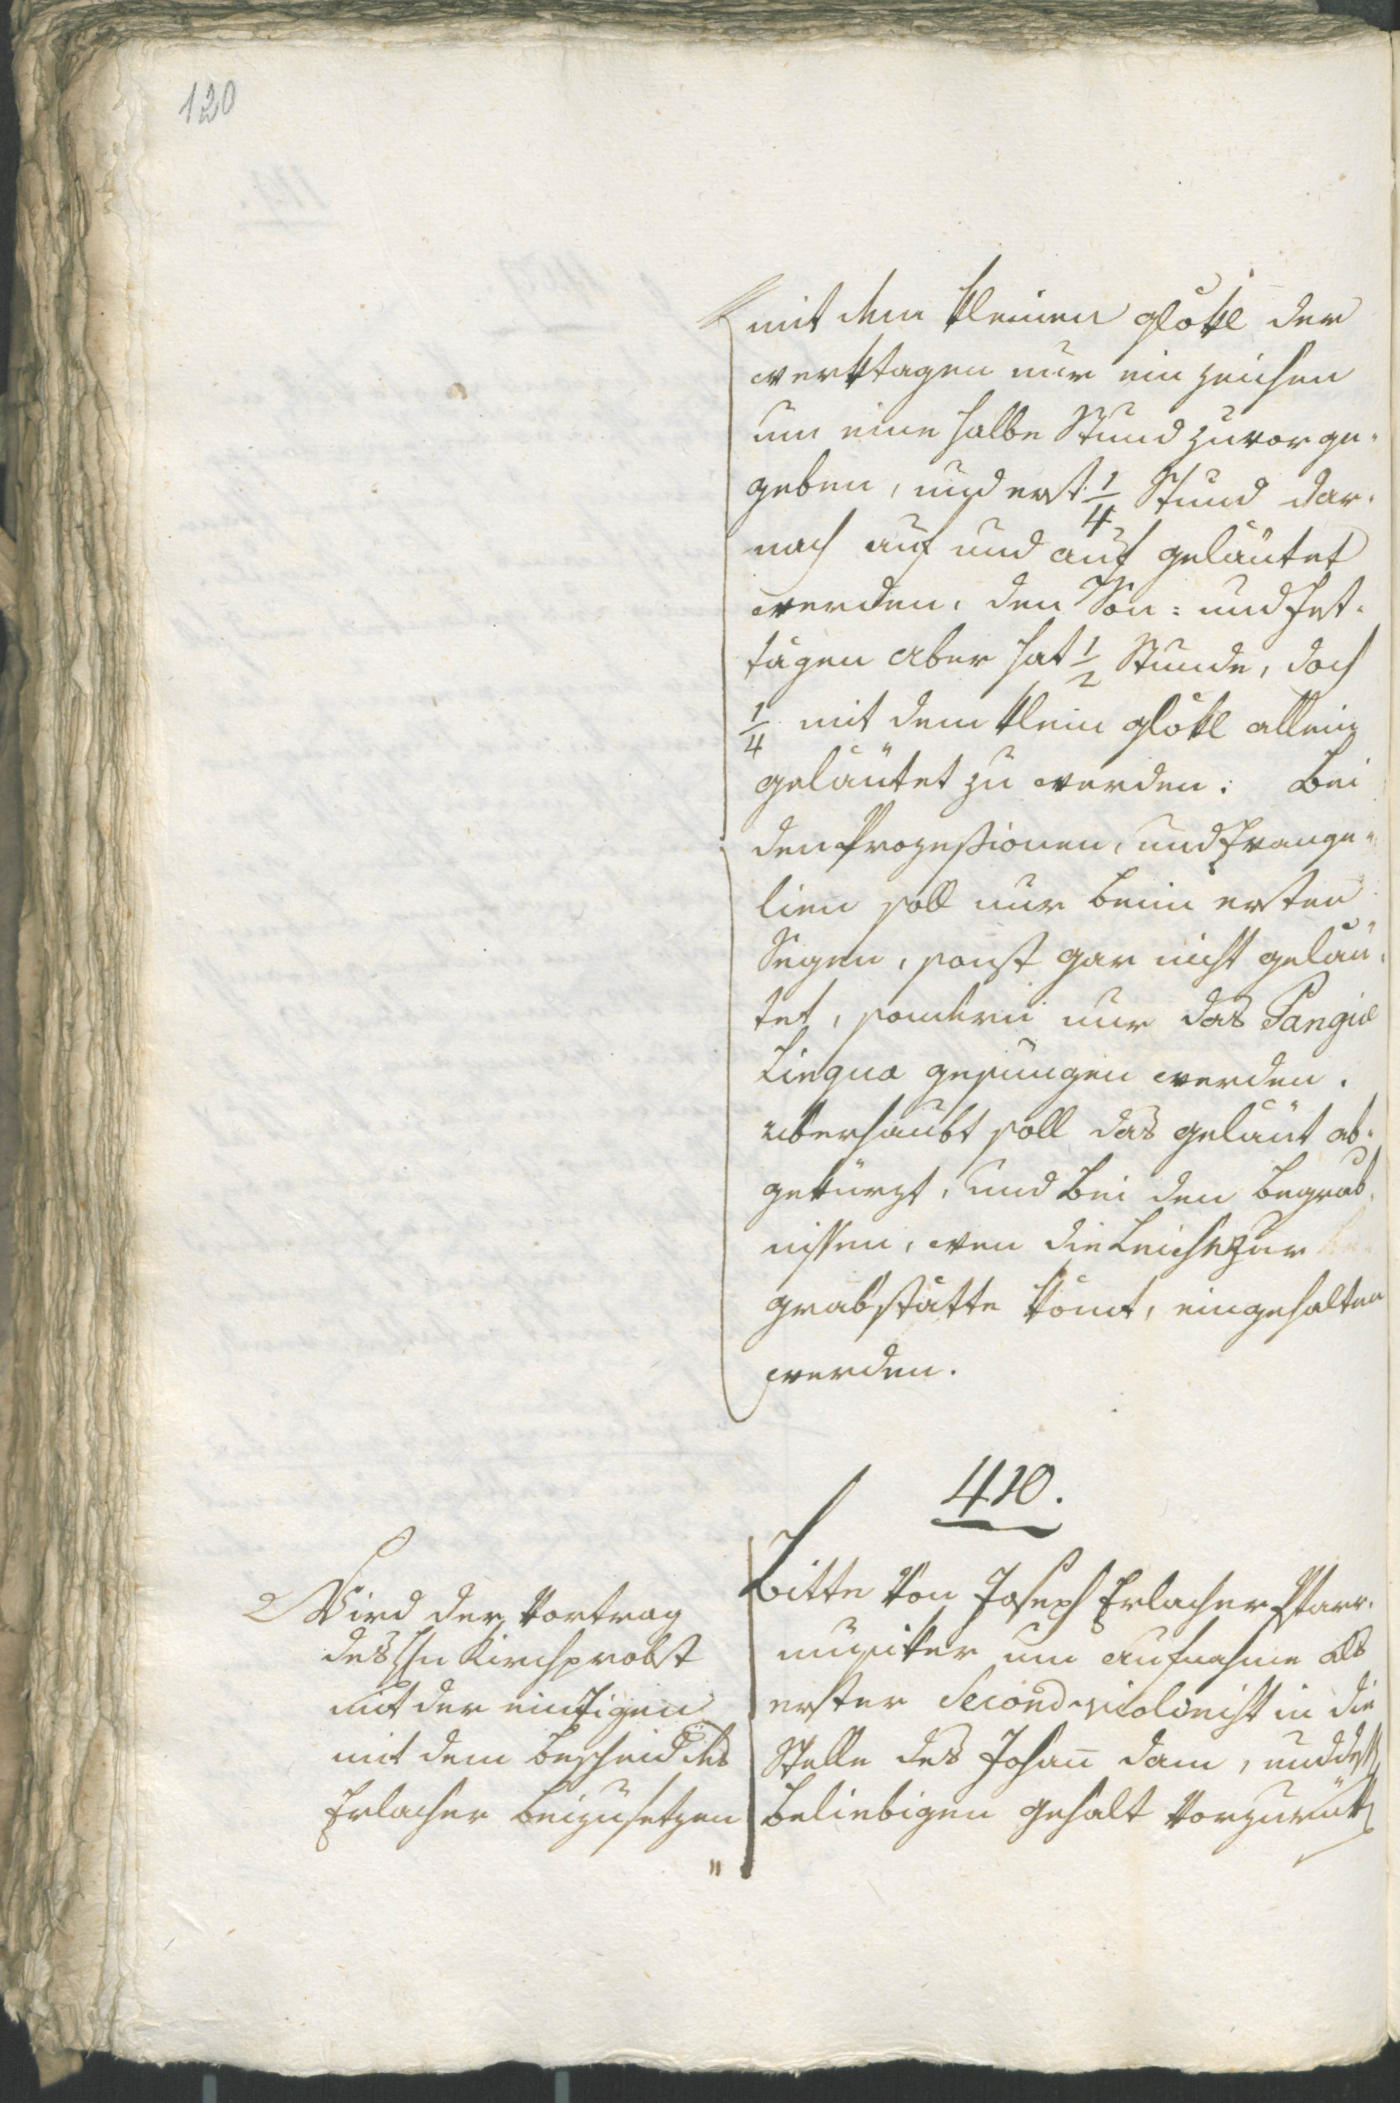 120
mit dem kleinen glökl der
werktagen nur ein zeichen
um eine halbe Stund zuvor ge-
geben, und erst 1/4 Stund dar-
nach auf und auf geläutet
werden. den Son- und Fest-
tägen aber hat 1/2 Stunde, doch
1/4 mit dem klein glökl allein
geläutet zu werden. Bei
den Prozeßionen, und Evange-
lien soll nur beim ersten
Segen, sonst gar nicht geläu-
tet, sondern nur das Pangue
Lingua gesungen werden.
überhaubt soll das geläut ab-
gekürzt, und bei den begräb-
nissen, wen die Leiche zur
grabstätte kömt, eingehalten
werden.
410.
Bitte von Joseph Erlacher Pfarr-
musiker um aufnahme als
erster Second-violinist in die
Stelle des Johan̄ Dam, und
beliebigen gehalt
Wird der Vortrag
des Hn Kirchprobst
mit der
mit dem bescheid des
Erlacher beizusetzen
"